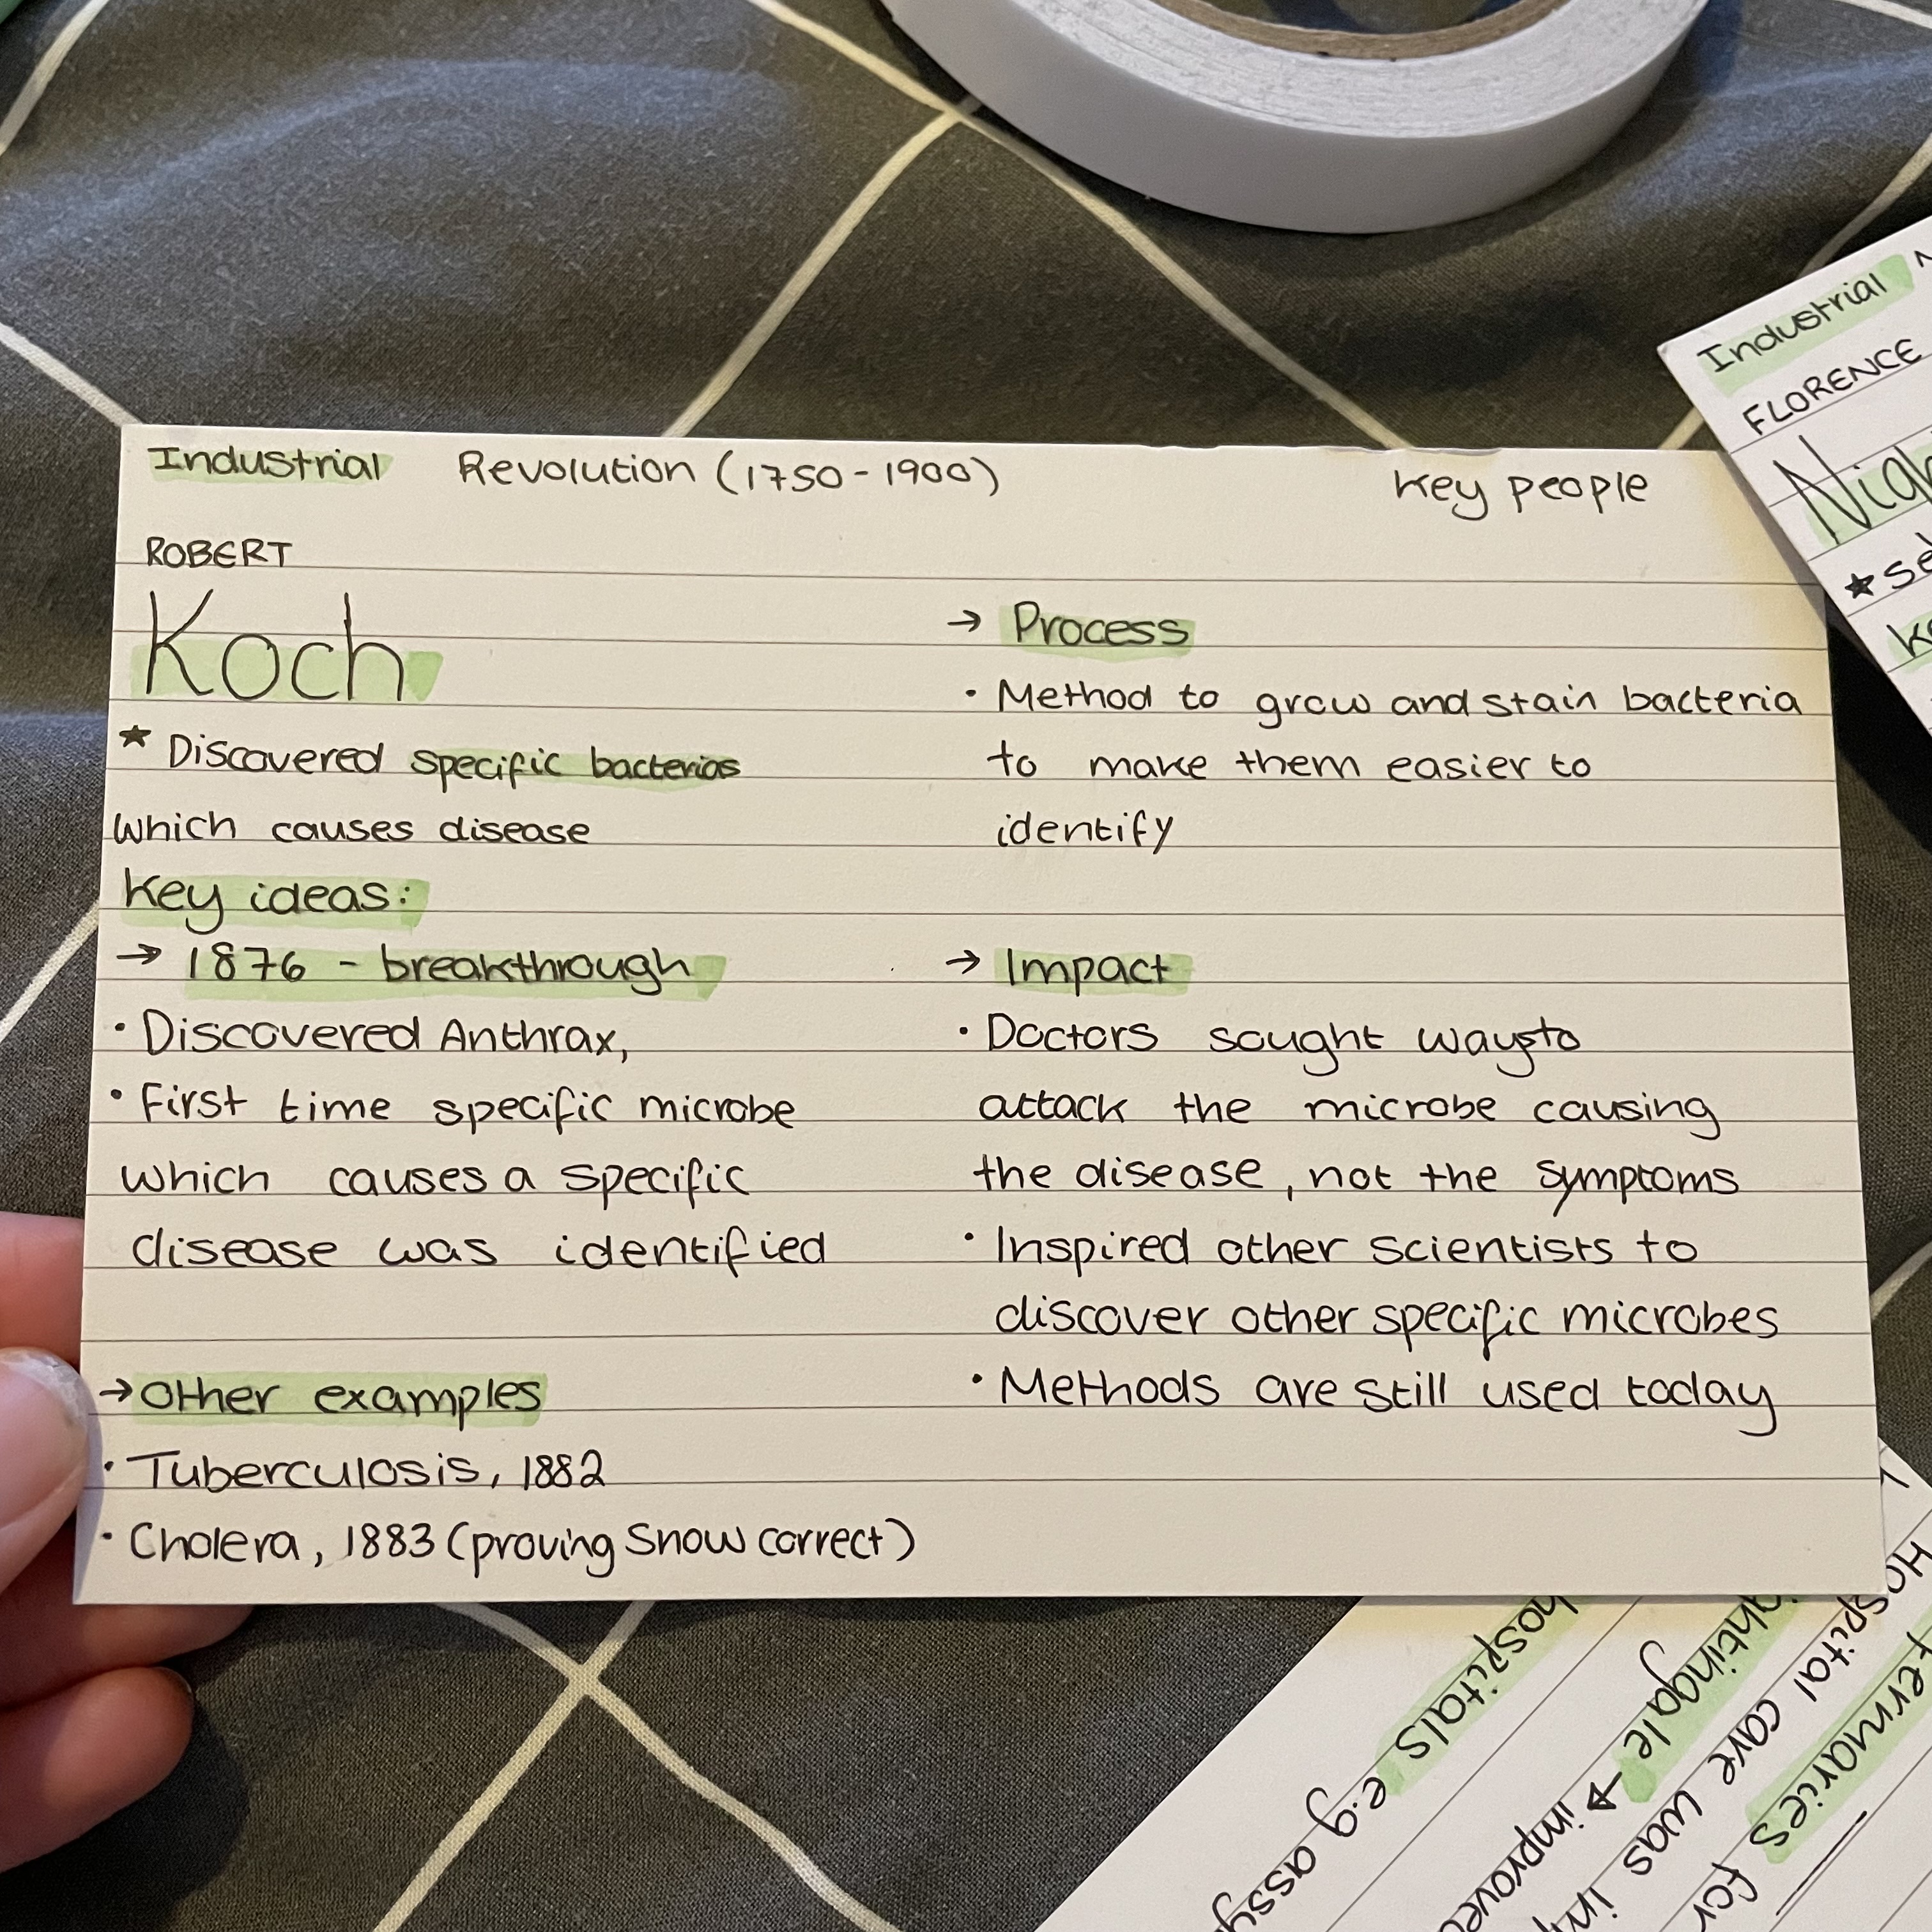 Industrial Revolution (1750-1900) Key people
ROBERT
Koch
★ Discovered specific bacterias
which causes disease
Key ideas:
→ 1876 - breakthrough
• Discovered Anthrax,
• First time specific microbe
which causes a specific
disease was identified
→ Other examples
• Tuberculosis, 1882
• Cholera, 1883 (proving Snow correct)
→ Process
• Method to grow and stain bacteria
to make them easier to
identify
→ Impact
• Doctors sought ways to
attack the microbe causing
the disease, not the symptoms
• Inspired other scientists to
discover other specific microbes
• Methods are still used today
Industrial
FLORENCE
★
hospitals e.g
→ improved
Hospital care was
for